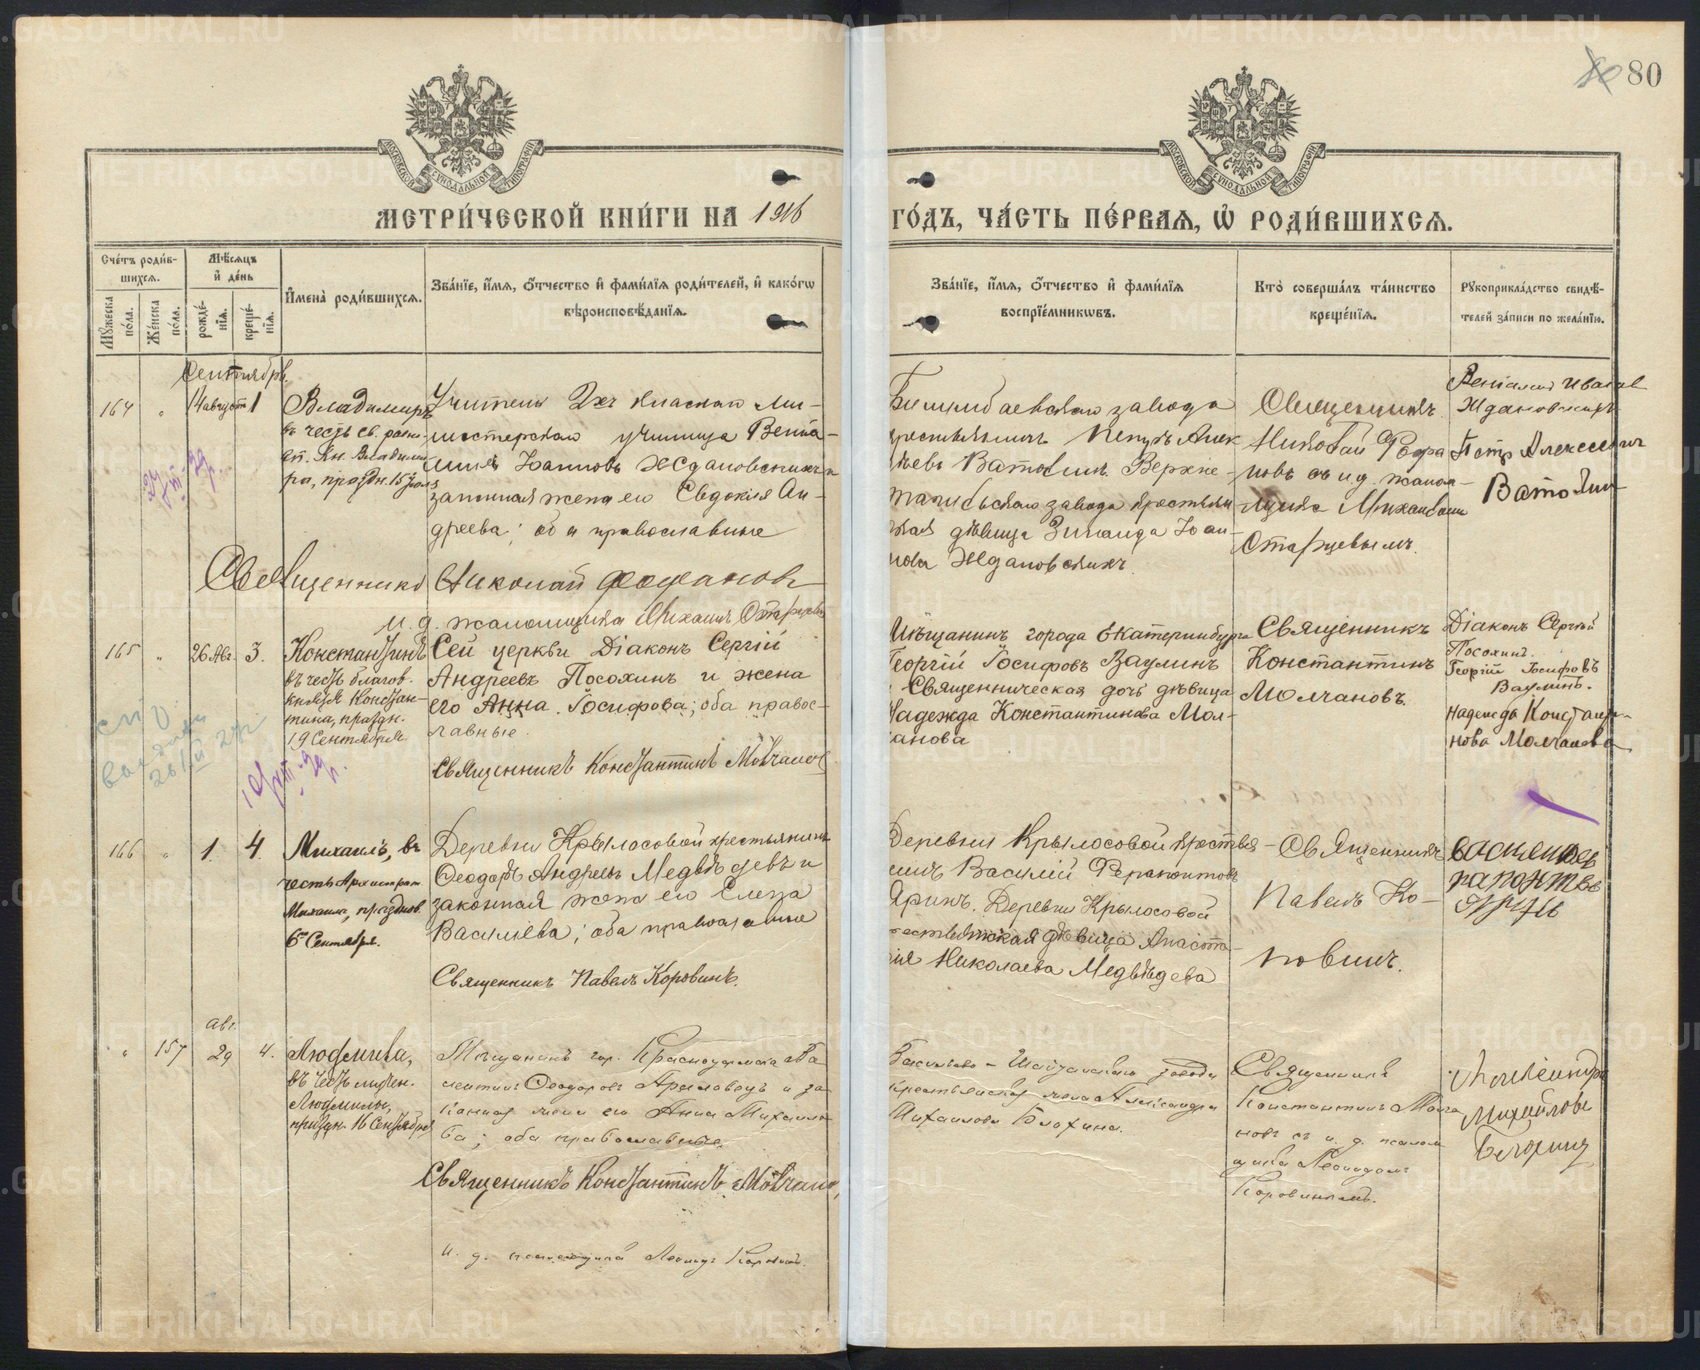 80
МЕТРИ́ЧЕСКОЙ КНИ́ГИ НА 1916
ГО́ДЪ, ЧА́СТЬ ПЕ́РВАЯ, Ѡ҆ РОДИ́ВШИХСЯ.
Сче́тъ роди́в-
шихся.
Мꙋ́жеска по́ла.
Же́нска по́ла.
Мѣ́сяцъ
и҆ де́нь
рожде́-
нїя.
креще́-
нїя.
И҆мена̀ роди́вшихся.
Зва́нїе, и҆́мя, ѻ҆́тчество и҆ фами́лїя роди́телей, и҆ како́гѡ
вѣроисповѣ́данїя.
Зва́нїе, и҆́мя, ѻ҆́тчество и҆ фами́лїя
воспрїе́мникѡвъ.
Кто̀ соверша́лъ та́инство
креще́нїя.
Рꙋкоприкла́дство свидѣ́-
телей за́писи по жела́нїю.
Сентябрь
164 " 14 август 1
Владимиръ
въ честь св. равно-
ап. Кн. Владими-
ра, праздн. 15 Іюля
Учитель 2хъ класнаго Ми-
нистерскаго училища Венiа-
минъ Іоанновъ Ждановскихъ и
законная жена его Евдокія Ан-
дреева; оба православные
Священникъ Николай
и. д. псаломщика Михаилъ Старцевъ
Билимбаевскаго завода
крестьянинъ Петръ Алек
сѣевъ Ватолинъ Верхне-
Тагильскаго завода крестьян
ская дѣвица Зинаида Іоан-
нова Ждановскихъ.
Священникъ
Николай
новъ съ и. д. псалом-
щика Михаиломъ
Старцевымъ.
Венiамин Иванов
Ждановскихъ
Петр Алексеевич
Ватолин
165 " 26 Авг. 3.
Константинъ
въ честь благов.
князя Констан-
тина, праздн.
19 Сентября.
Сей церкви Діаконъ Сергій
Андреевъ Посохинъ и жена
его Анна Іосифова; оба правос-
лавные.
Священникъ Константинъ Молчановъ
Мѣщанинъ города Екатеринбурга
Георгій Іосифовъ Ваулинъ
и Священническая дочь дѣвица
Надежда Константинова Мол-
чанова
Священникъ
Константинъ
Молчановъ.
Діаконъ Сергій
Посохинъ.
Георгій Іосифовъ
Ваулинъ.
Надежда Констант-
нова Молчанова
166 " 1. 4.
Михаилъ, въ
честь Архистрат.
Михаила, празднов.
6го Сентября.
Деревни Крылосовой крестьянинъ
Ѳеодоръ Андреевъ Медвѣдевъ и
законная жена его Елена
Васильева; оба православные
Священникъ Павелъ Коровинъ.
Деревни Крылосовой крестья-
нинъ Василій Ферапонтовъ
Яринъ. Деревни Крылосовой
крестьянская дѣвица Анаста-
сія Николаева Медвѣдева
Священникъ
Павелъ Ко-
ровинъ.
" 157 авг. 29 4.
Людмила,
въ честь мучен.
Людмилы,
праздн. 16 Сентября
Мѣщанинъ гор. Красноуфимска Ва
лентинъ Ѳеодоровъ Ярославцъ и за
конная жена его Анна Михаило
ва; оба православные.
Священникъ Константинъ Молчановъ,
и. д. псаломщика Леонидъ Коровинъ.
Васильево-Шайтанскаго завода
крестьянская жена Александра
Михаилова Блохина.
Священникъ
Константинъ Молча
новъ съ и. д. псалом
щика Леонидомъ
Коровинымъ.
Александра
Михайлова
Блохина